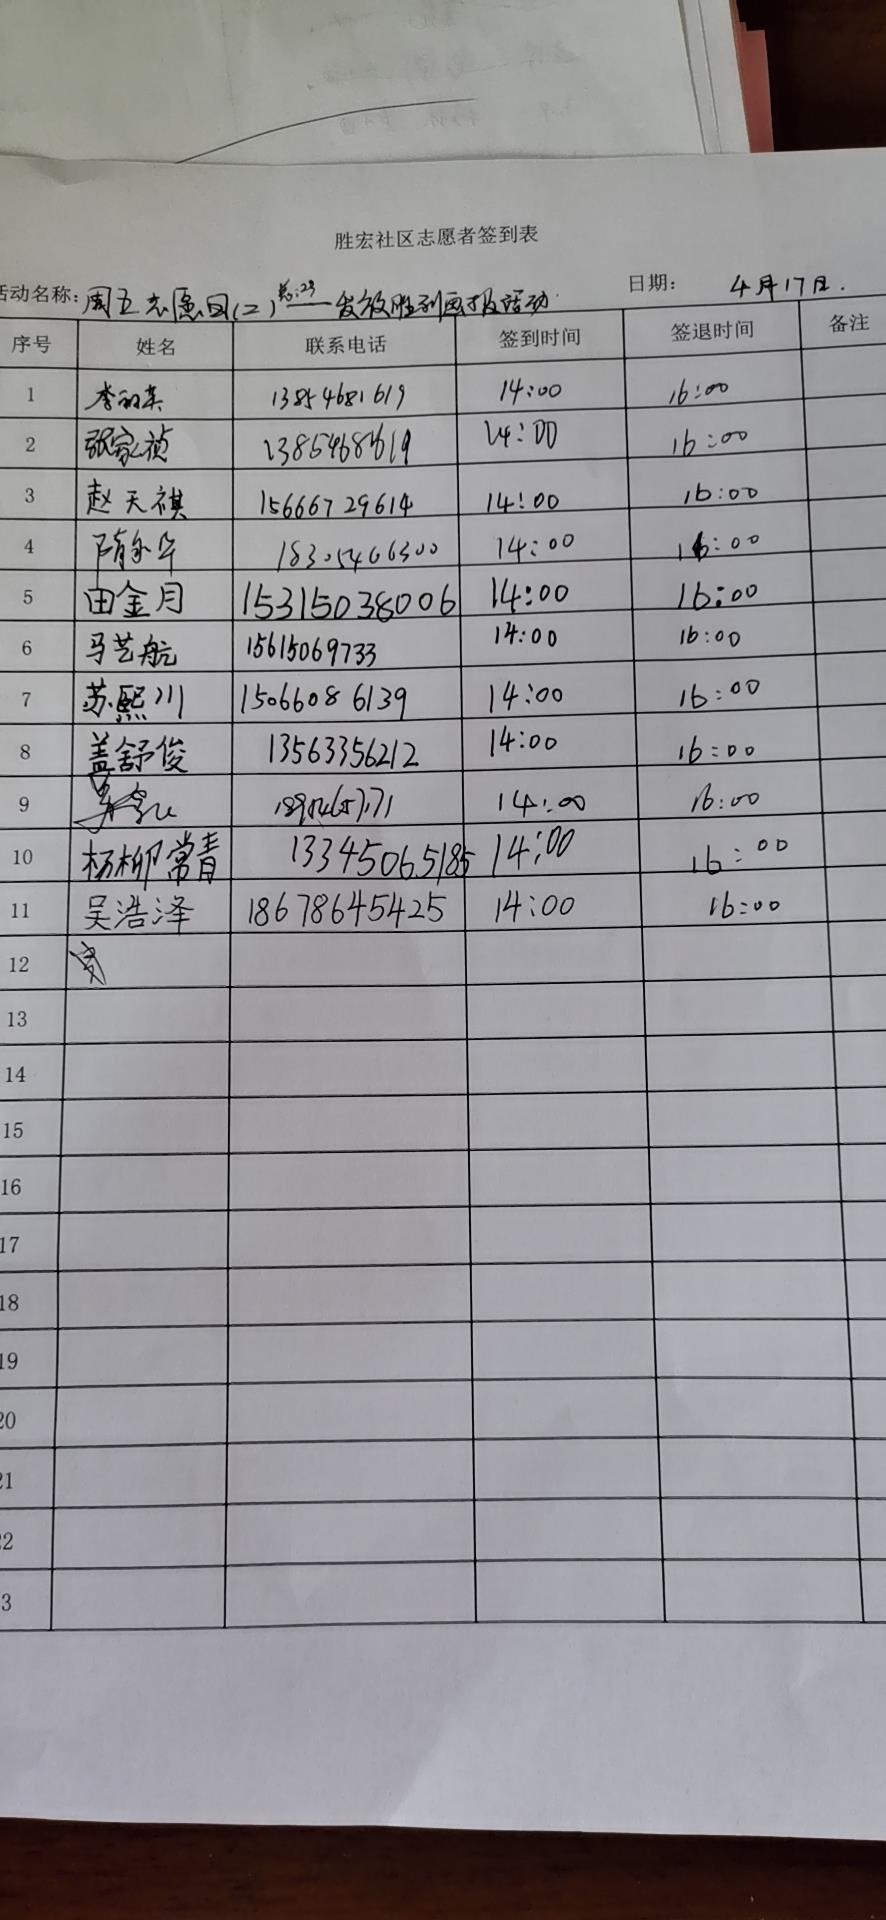 胜宏社区志愿者签到表
活动名称: 周五志愿团(二) 总:23 —— 发放胜利画报活动 日期: 4月17日.
序号 姓名 联系电话 签到时间 签退时间 备注
1 李 13854681619 14:00 16:00
2 张家祯 13854681619 14:00 16:00
3 赵天祺 15666729614 14:00 16:00
4 隋 18305466300 14:00 16:00
5 田金月 15315038006 14:00 16:00
6 马艺航 15615069733 14:00 16:00
7 苏熙川 15066086139 14:00 16:00
8 盖舒俊 13563356212 14:00 16:00
9 14:00 16:00
10 杨柳常青 13345065185 14:00 16:00
11 吴浩泽 18678645425 14:00 16:00
12
13
14
15
16
17
18
19
20
21
22
3